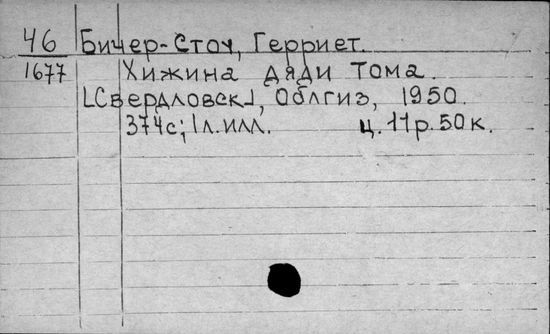 46 Бичер-Стоу, Герриет.
1677 Хижина дяди Тома.
[Свердловск], Облгиз, 1950.
374с; 1л. илл. ц. 11р. 50к.